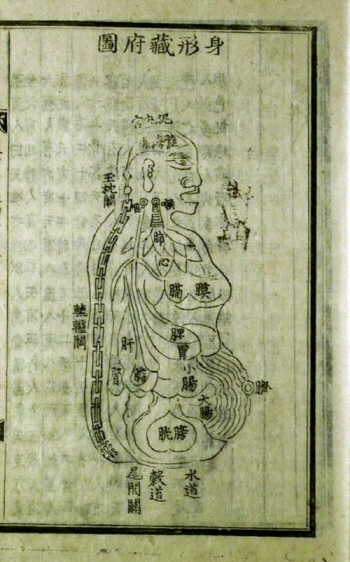 身形藏府圖
泥丸宮
髓海腦
玉枕關
喉
咽
肺
心
膜
膈
脾
胃
肝
小腸
大腸
臍
膀胱
轆轤關
水道
穀道
尾閭關